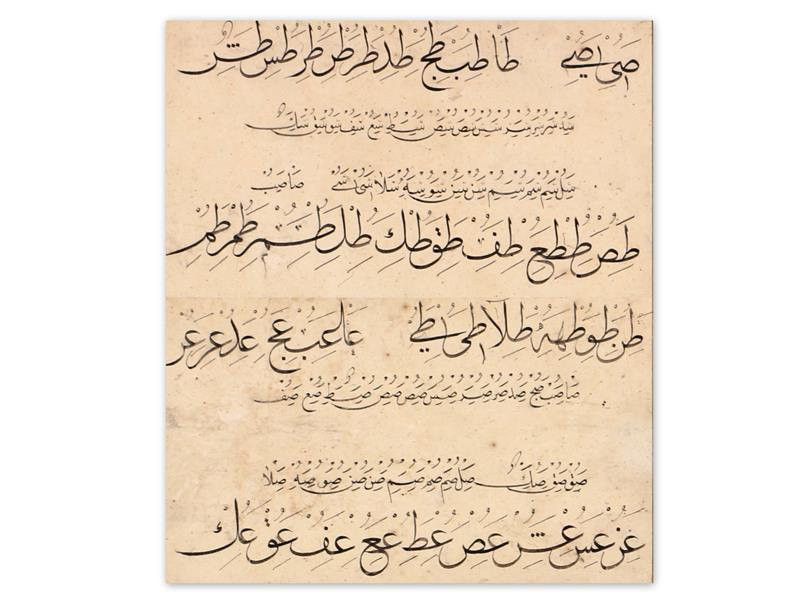 صى صے طا طب طج طد طر طر طر طس طش
سد سر سر سر سس سص سص سط سع سف سو سق سك
سل سم سم سم سن سن سو سه سلا سى سے صا صب
طص طط طع طف طق طك طل طم طم طم
طن طو طهه طلا طى طے عا عب عج عد عر عر
صا صب صج صد صر صر صس صص صص صط صع صف
صو صق صك صل صم صم صم صن صن صو صه صلا
عر عس عش عص عط عع عف عق عك